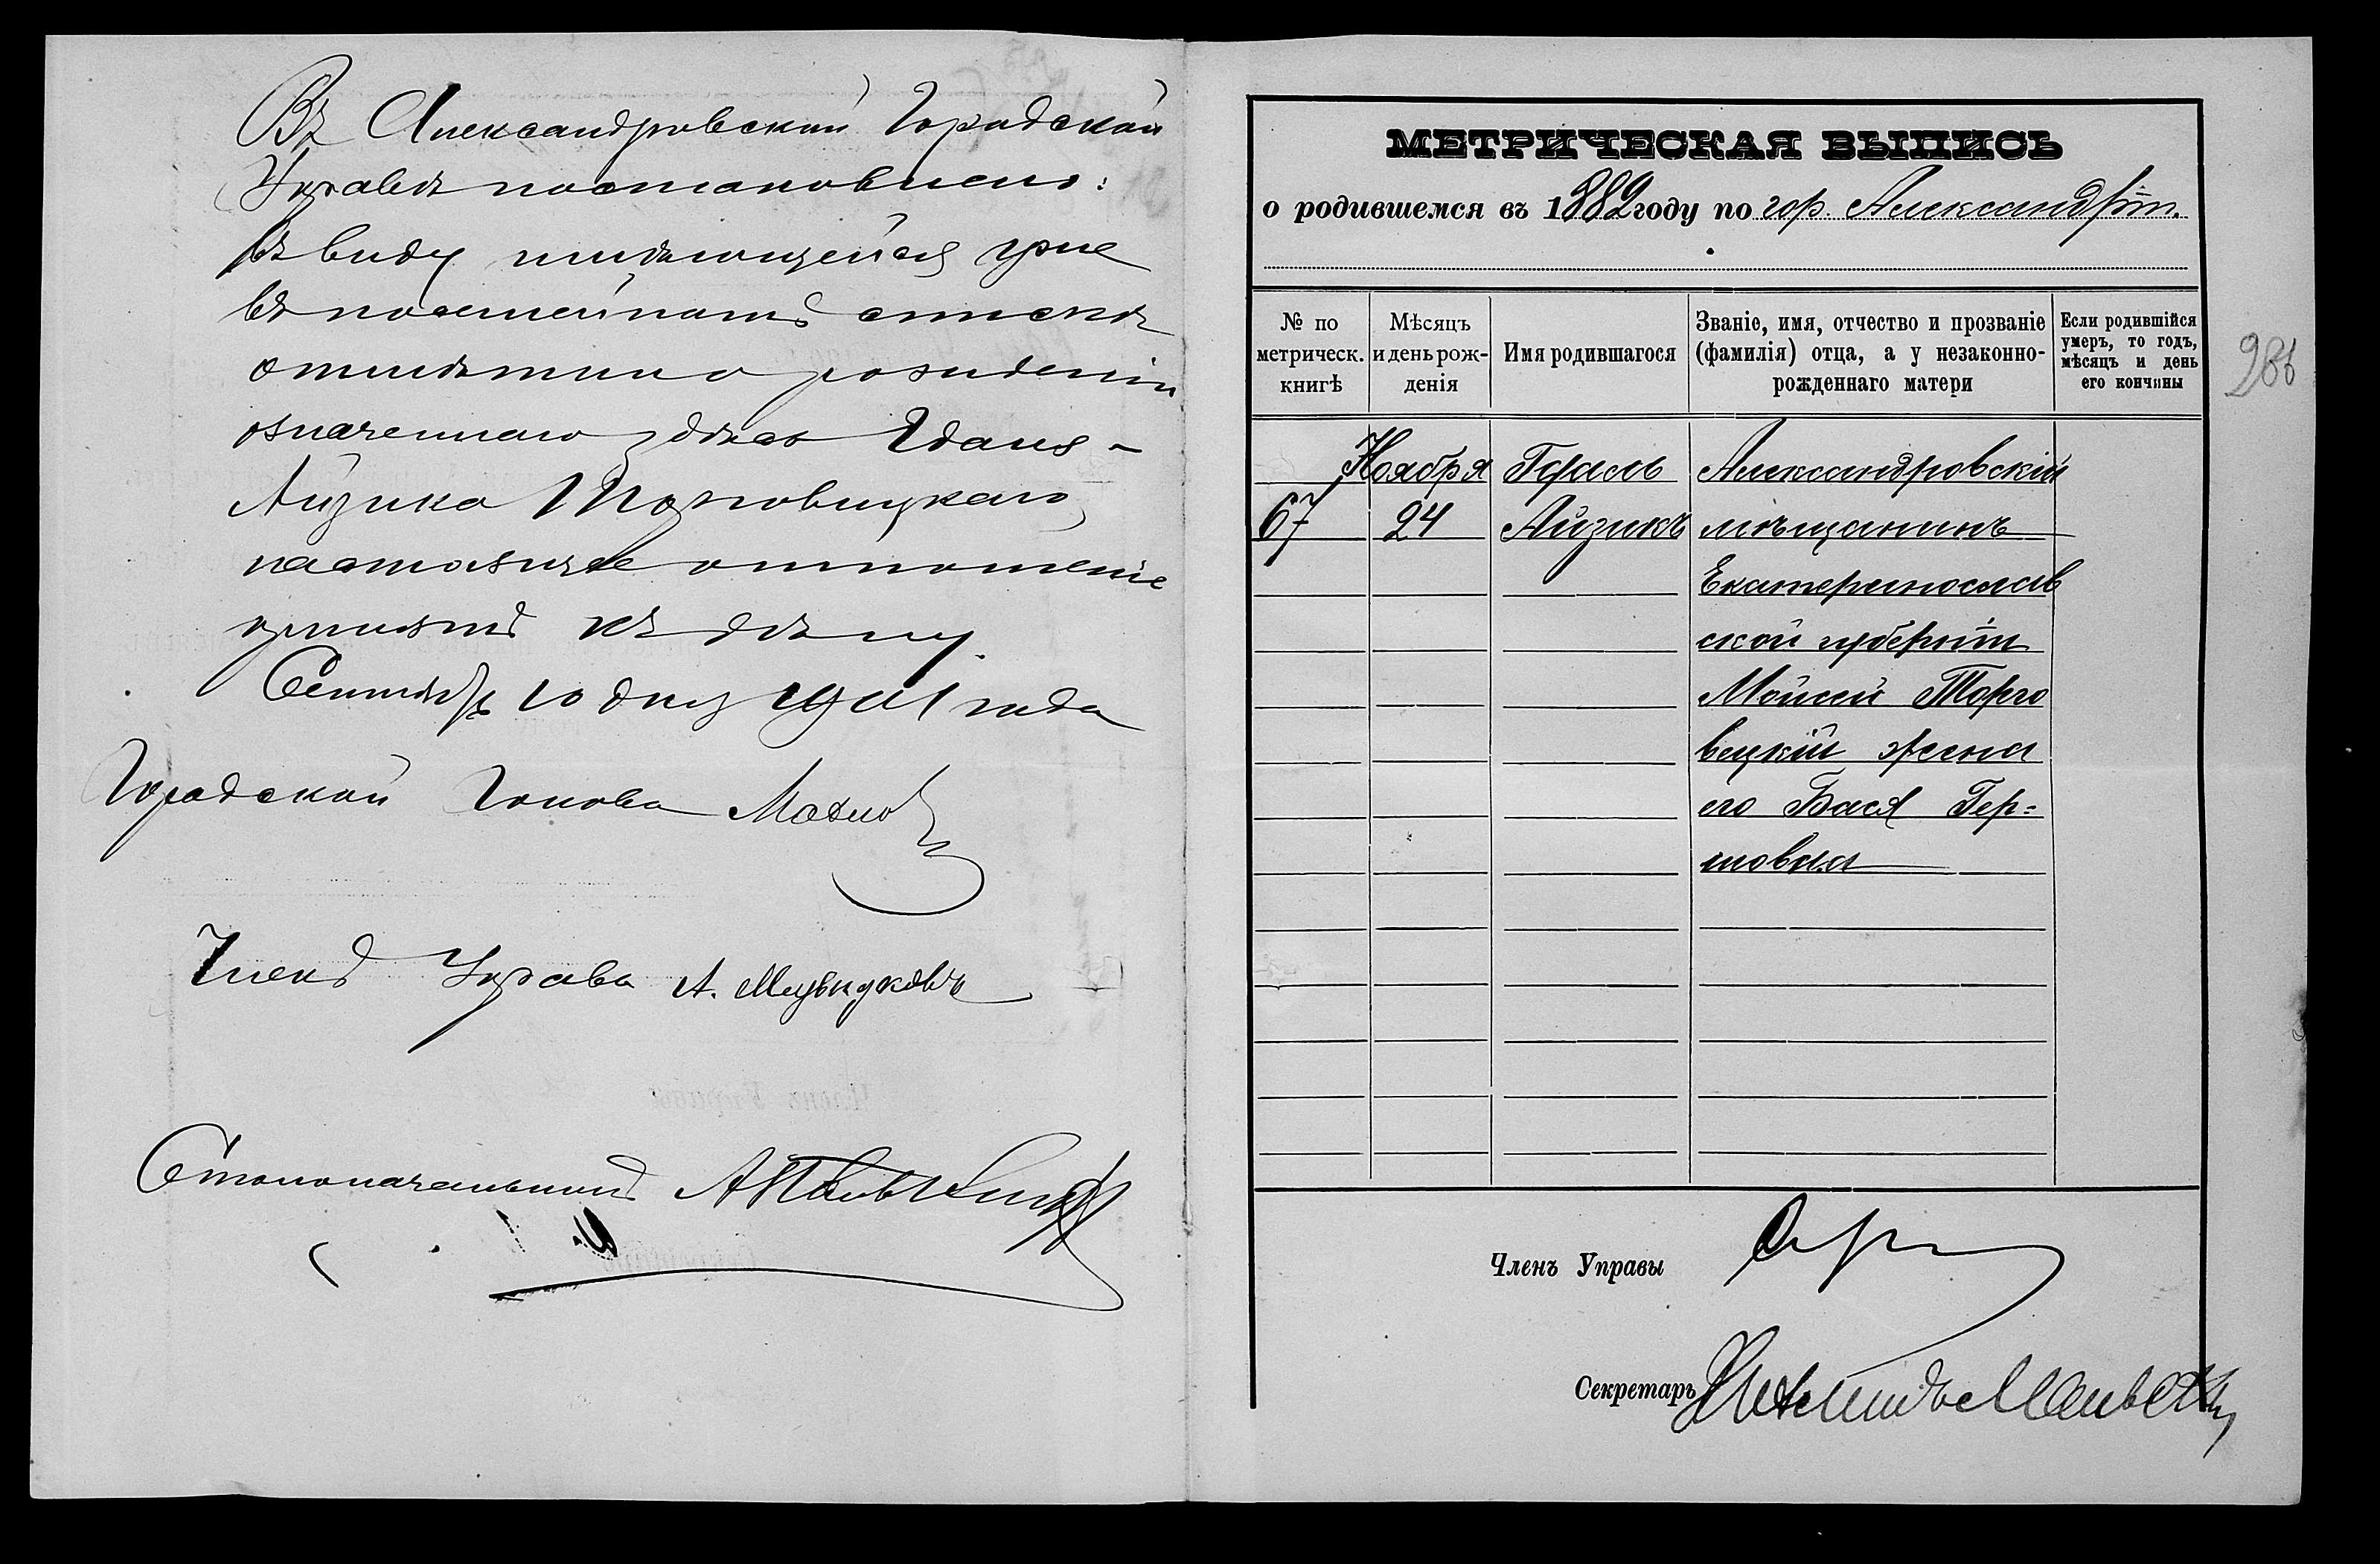 Въ Александровской Городской
Управѣ постановлено:
Въ виду имѣющейся уже
въ посемейномъ спискѣ
отмѣтки о рожденіи
означеннаго здѣсь Гдаля-
Айзика Торговицкаго
настоящее отношеніе
пріюбщ къ дѣлу.
Сентября 10 дня 1901 года
Городской Голова
Членъ Управы А.
Столоначальникъ
МЕТРИЧЕСКАЯ ВЫПИСЬ
о родившемся въ 1882 году по гор. Александріи.
№ по метрическ. книгѣ
Мѣсяцъ и день рожденія
Имя родившагося
Званіе, имя, отчество и прозваніе (фамилія) отца, а у незаконнорожденнаго матери
Если родившійся умеръ, то годъ, мѣсяцъ и день его кончины
286
Ноября Гдаль Александровскій
67 24 Айзикъ мѣщанинъ
Екатеринослав
ской губерніи
Мойсей Торго
вецкій жена
его Бася Гер=
шовна
Членъ Управы
Секретарь